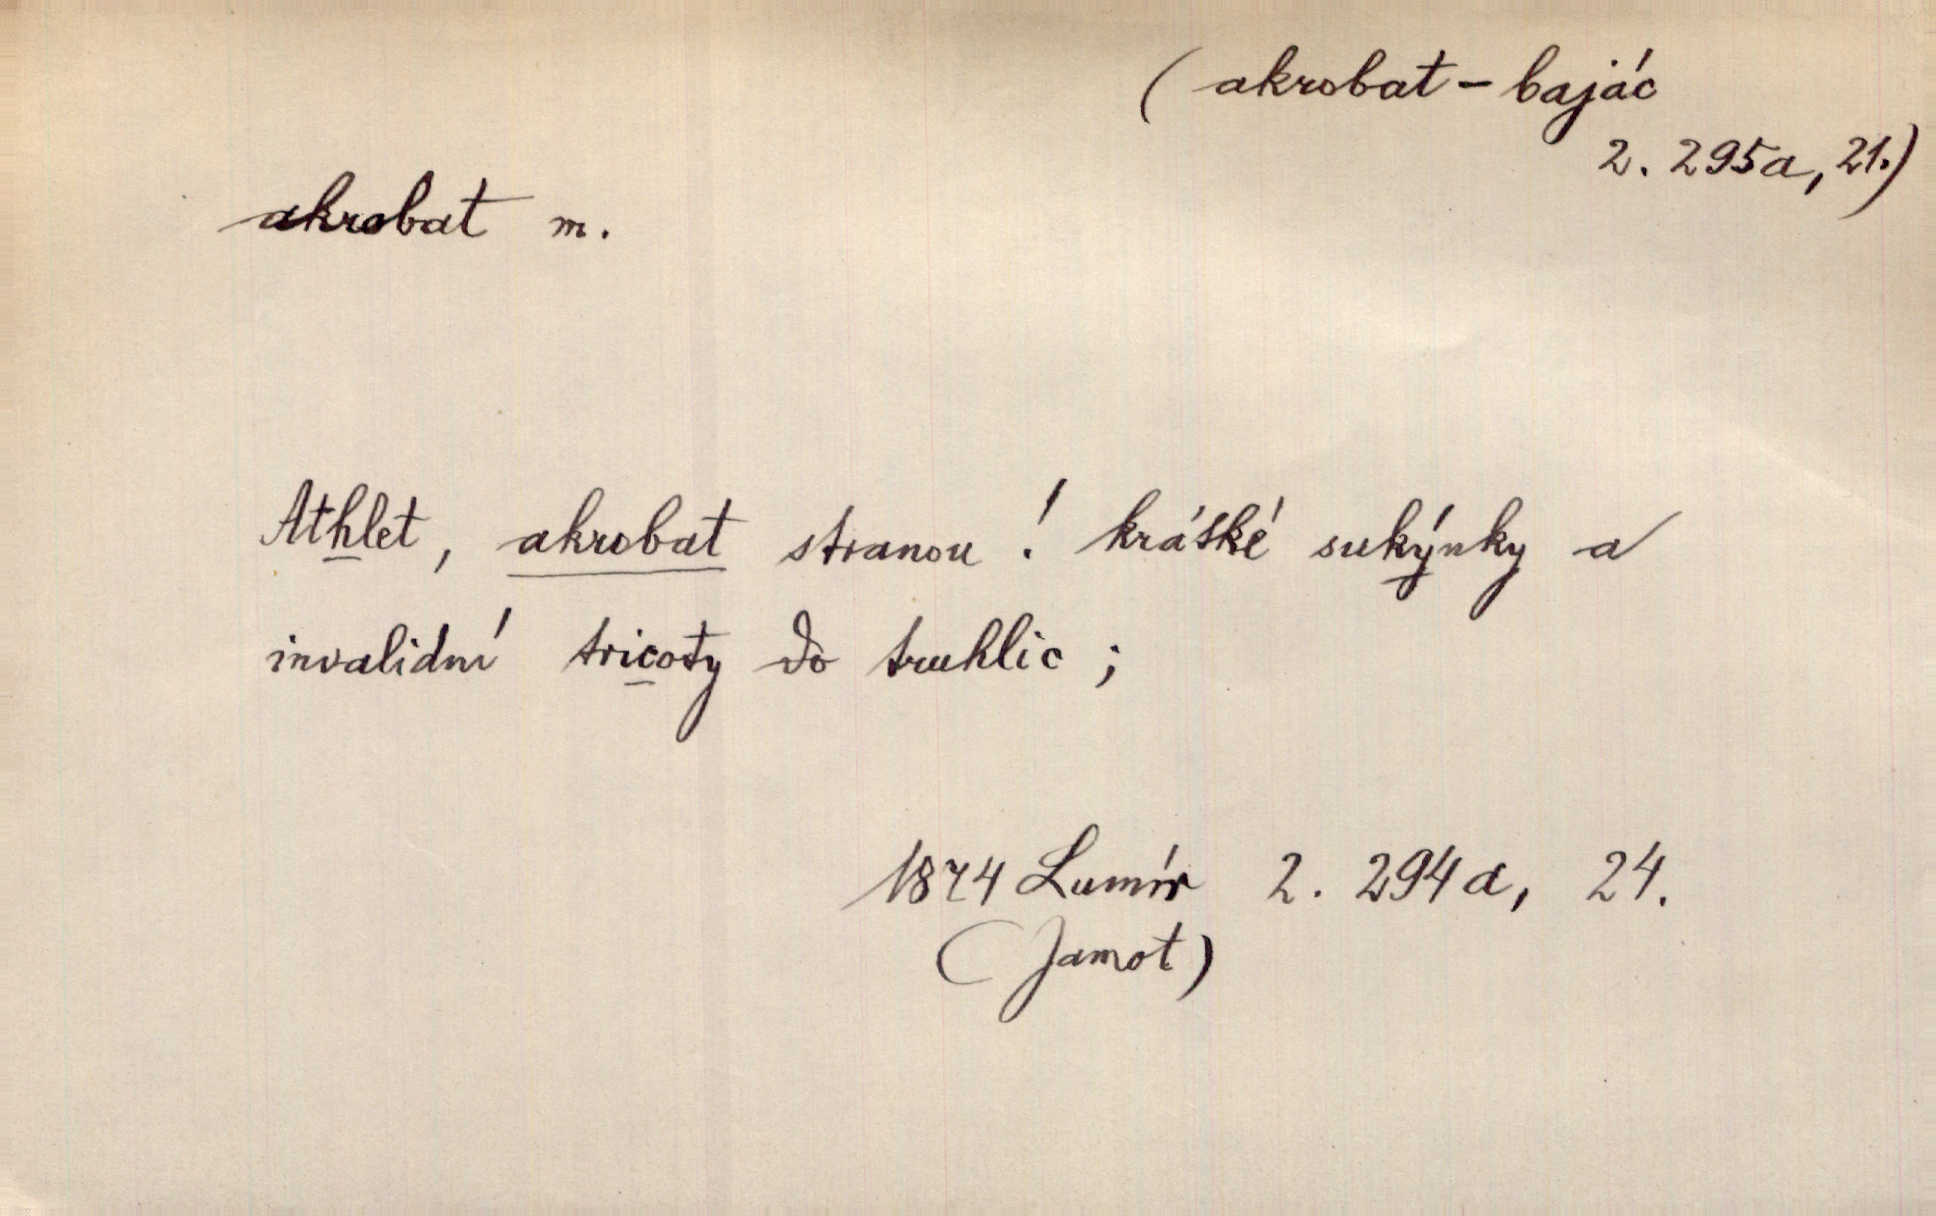 ( akrobat - bajác
2. 295a, 21.)
akrobat m.
Athlet, akrobat stranou! krátké sukýnky a
invalidní tricoty do truhlic ;
1874 Lumír 2. 294a, 24.
(Jamot)